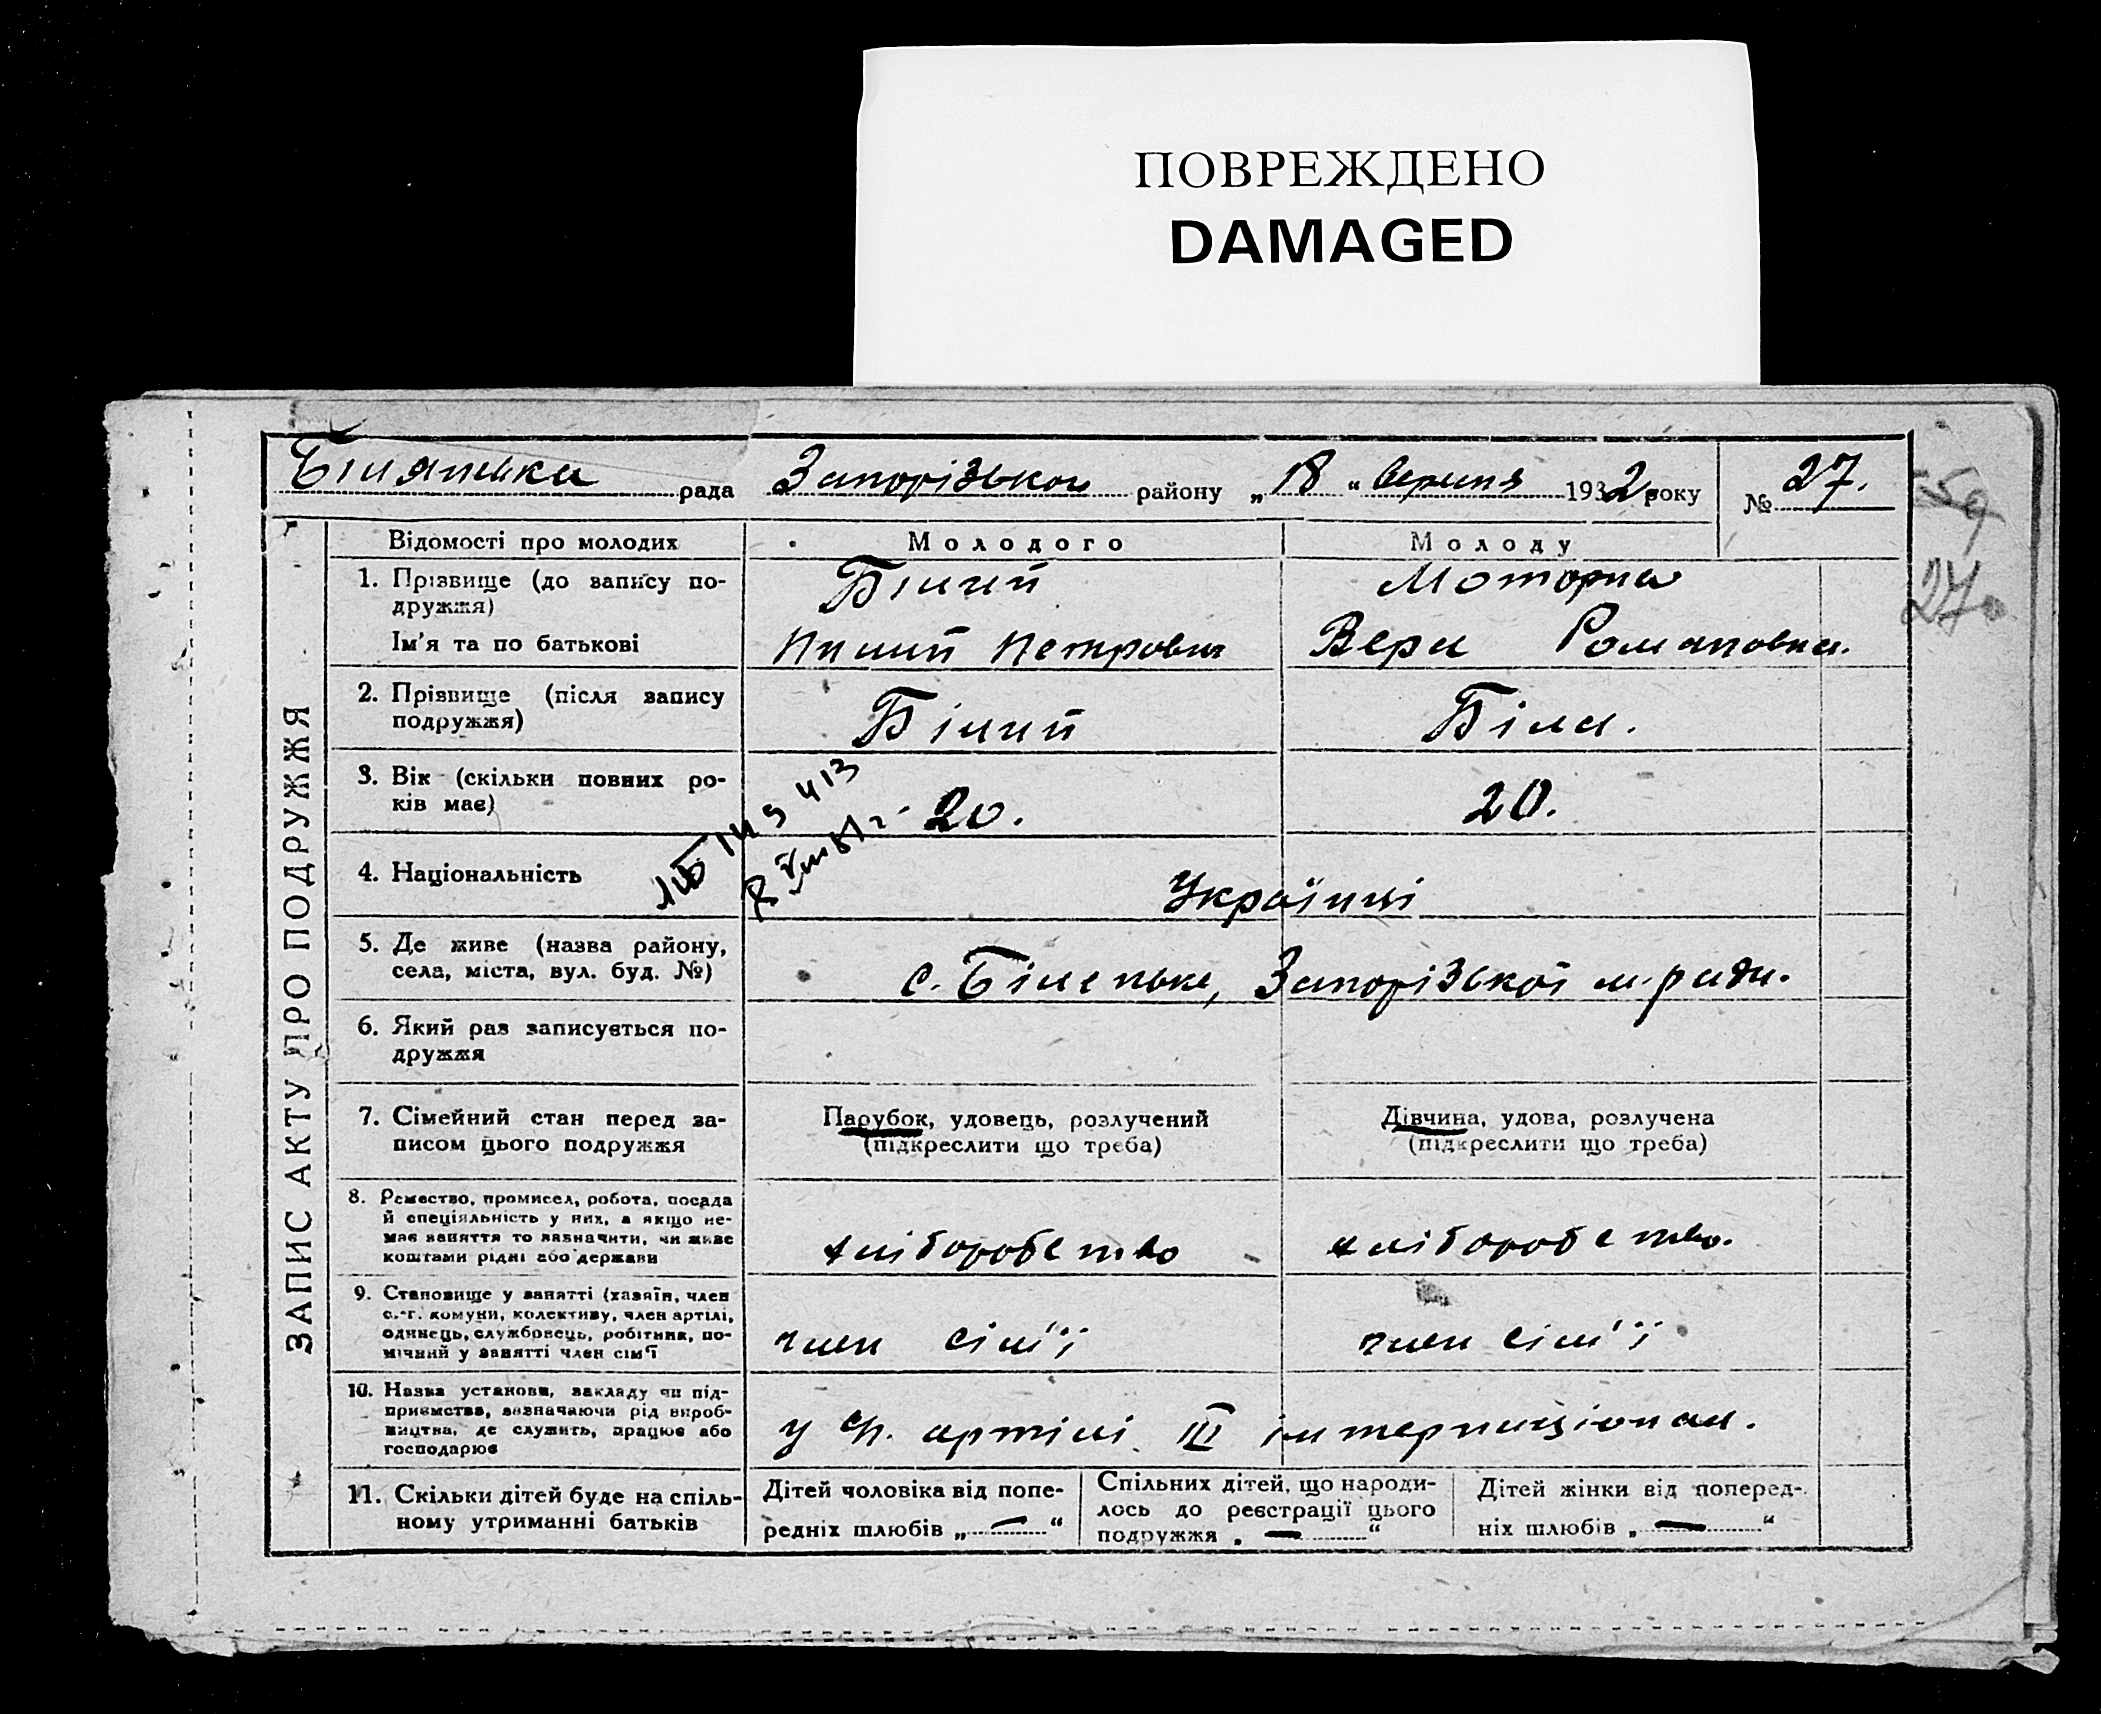 ПОВРЕЖДЕНО
DAMAGED
рада Запорізького району „18“ вересня 1932 року № 27.
59
27
ЗАПИС АКТУ ПРО ПОДРУЖЖЯ
Відомості про молодих
Молодого
Молоду
1. Прізвище (до запису по-
дружжя)
Білий
Моторна
Ім'я та по батькові
Петрович
Вера Романовна.
2. Прізвище (після запису
подружжя)
Білий
Біла.
3. Вік (скільки повних ро-
ків має)
20.
20.
4. Національність
Українці
5. Де живе (назва району,
села, міста, вул. буд. №)
с. Біленьке, Запорізької м. ради.
6. Який раз записується по-
дружжя
7. Сімейний стан перед за-
писом цього подружжя
Парубок, удовець, розлучений
(підкреслити що треба)
Дівчина, удова, розлучена
(підкреслити що треба)
8. Ремество, промисел, робота, посада
й спеціяльність у них, а якщо не-
має заняття то зазначити, чи живе
коштами рідні або держави
хліборобство
хліборобство.
9. Становище у занятті (хазяїн, член
с.-г. комуни, колективу, член артілі,
одинець, службовець, робітник, по-
мічний у занятті член сім'ї
член сім'ї
член сім'ї
10. Назва установи, закладу чи під-
приємства, зазначаючи рід вироб-
ництва, де служить, працює або
господарює
у артілі III інтернаціонал.
11. Скільки дітей буде на спіль-
ному утриманні батьків
Дітей чоловіка від попе-
редніх шлюбів „—“
Спільних дітей, що народи-
лось до реєстрації цього
подружжя „—“
Дітей жінки від поперед-
ніх шлюбів „—“